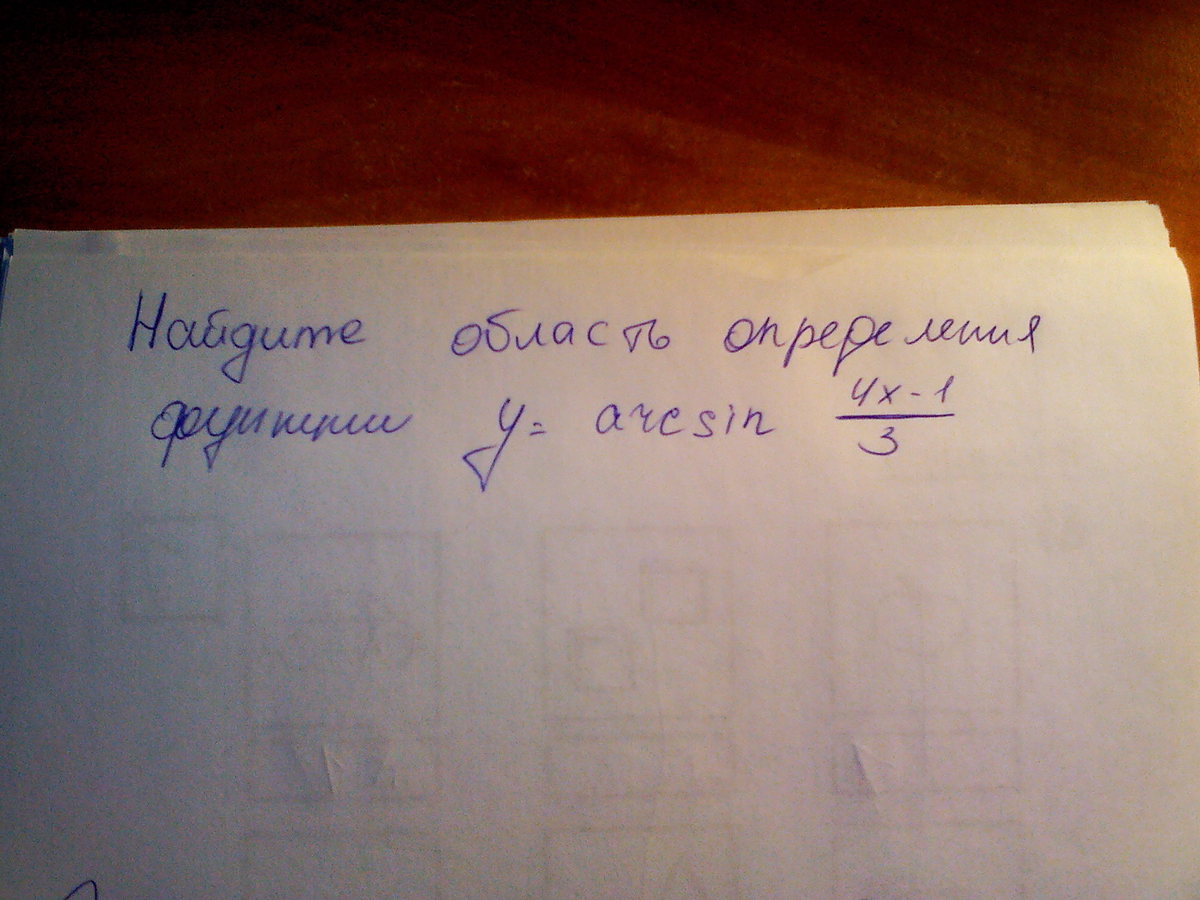 Найдите область определения
функции y = arcsin (4x-1)/3